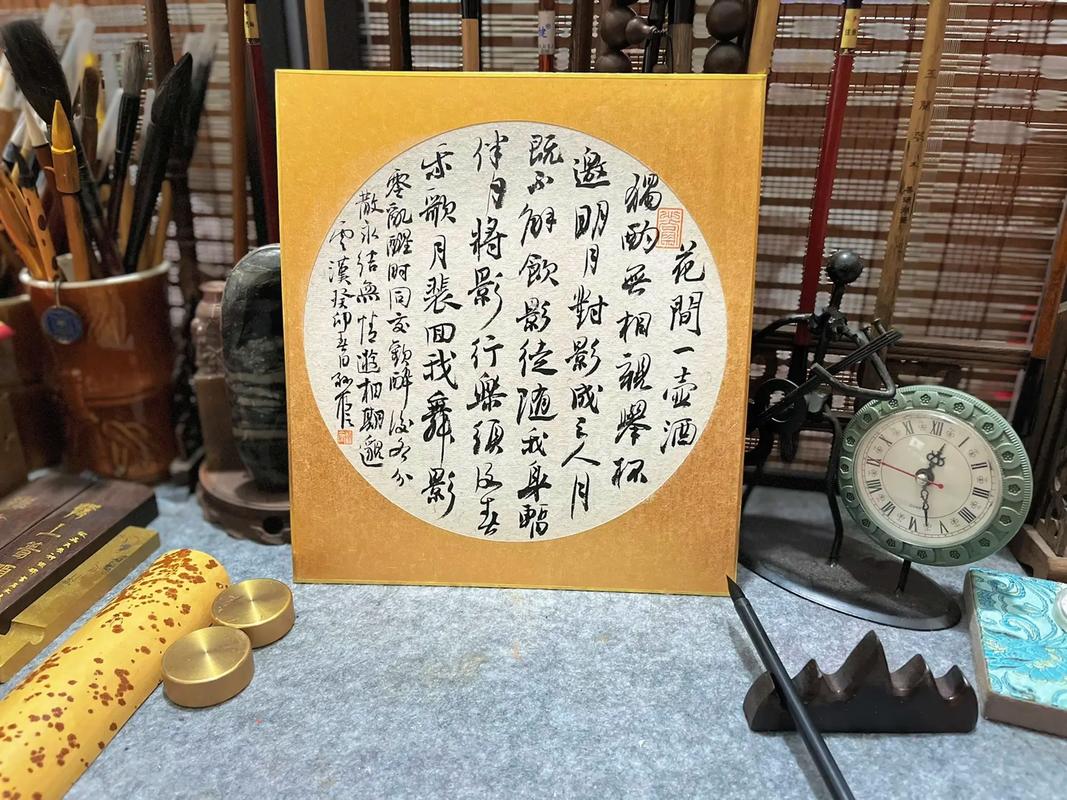 花間一壺酒
獨酌無相親舉杯
邀明月對影成三人月
既不解飲影徒隨我身暫
伴月將影行樂須及春
我歌月裴回我舞影
零亂醒時同交歡醉後各分
散永結無情遊相期邈
雲漢癸卯